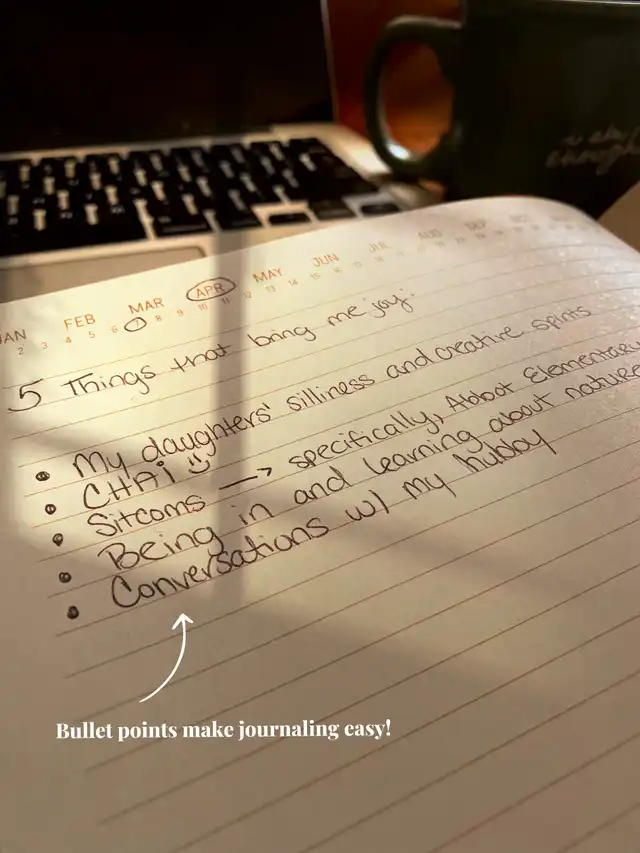 JAN FEB MAR APR MAY JUN JUL AUG SEP OCT
2 3 4 5 6 7 8 9 10 11 12 13 14 15 16
5 Things that bring me joy:
• My daughters' silliness and creative spirits
• CHAI
• Sitcoms → specifically, Abbot Elementary
• Being in and learning about nature
• Conversations w/ my hubby
Bullet points make journaling easy!